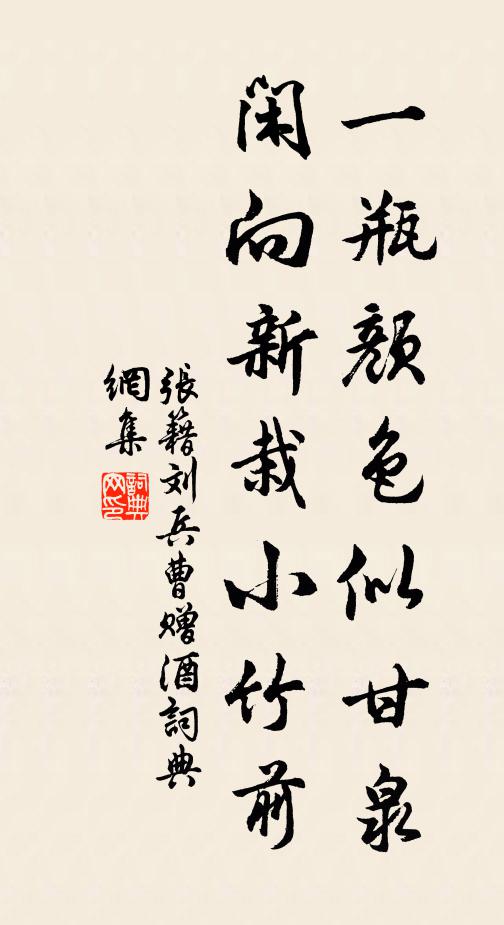 一瓶颜色似甘泉
闲向新栽小竹前
張籍刘兵曹赠酒詞典
網集
詞典
网印